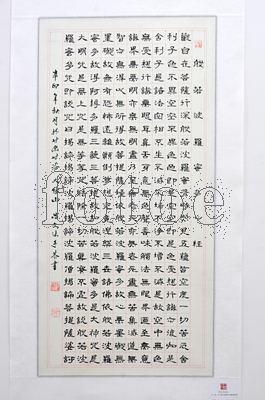 般若波羅蜜多心經
觀自在菩薩行深般若波羅蜜多時照見五蘊皆空度一切苦厄舍
利子色不異空空不異色色即是空空即是色受想行識亦復如是
舍利子是諸法空相不生不滅不垢不淨不增不減是故空中無色
無受想行識無眼耳鼻舌身意無色聲香味觸法無眼界乃至無意
識界無無明亦無無明盡乃至無老死亦無老死盡無苦集滅道無
智亦無得以無所得故菩提薩埵依般若波羅蜜多故心無罣礙無
罣礙故無有恐怖遠離顛倒夢想究竟涅槃三世諸佛依般若波
羅蜜多故得阿耨多羅三藐三菩提故知般若波羅蜜多是大神咒是
大明咒是無上咒是無等等咒能除一切苦真實不虛故說般若波
羅蜜多咒即說咒曰揭諦揭諦波羅揭諦波羅僧揭諦菩提薩婆訶
辛卯年秋月於
書
fotoe